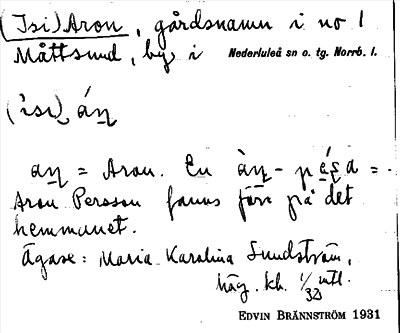 (Isi) Aron, gårdsnamn i no 1
Måttsund, by i Nederluleå sn o. tg. Norrb. l.
(ìsι) áƞ
aƞ = Aron. En àƞ-péʂa =
Aron Persson fanns förr på det
hemmanet.
Ägare: Maria Karolina Sundström,
häg. kh. 1/32 mtl.
EDVIN BRÄNNSTRÖM 1931